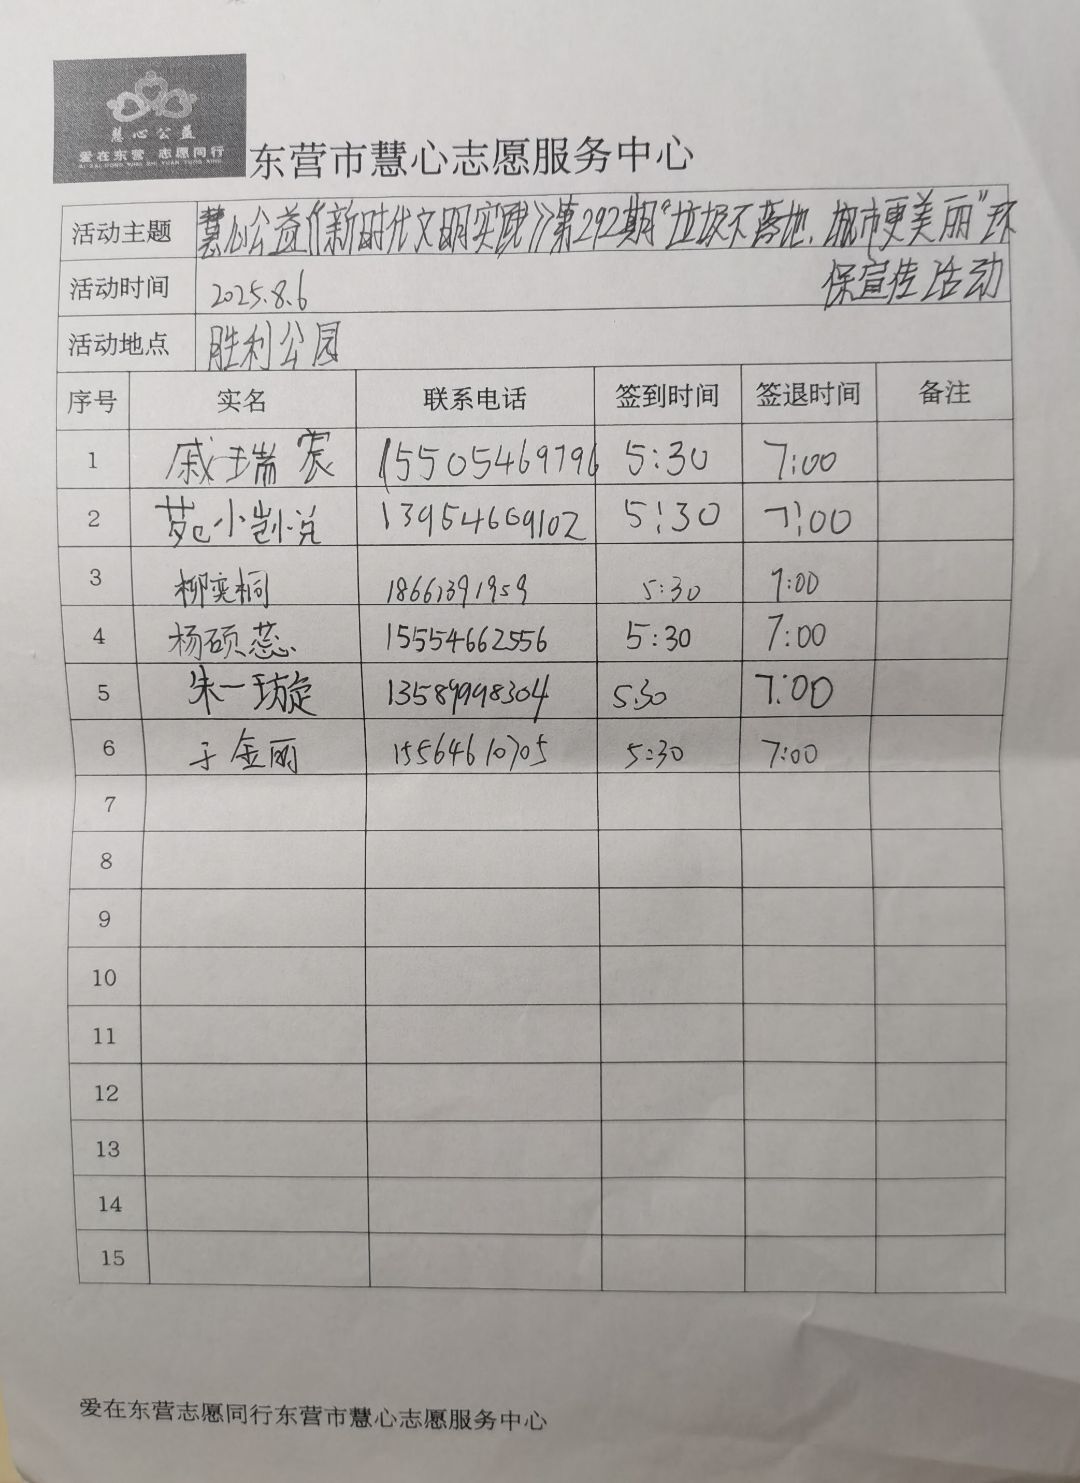 慧心公益
爱在东营 志愿同行
东营市慧心志愿服务中心
活动主题 慧心公益《新时代文明实践》第292期"垃圾不落地,城市更美丽"环
保宣传活动
活动时间 2025.8.6
活动地点 胜利公园
序号 实名 联系电话 签到时间 签退时间 备注
1 戚瑞宸 15505469796 5:30 7:00
2 小 13954669102 5:30 7:00
3 柳奕桐 18661391959 5:30 7:00
4 杨硕蕊 15554662556 5:30 7:00
5 朱一璇 13589998304 5:30 7:00
6 于金丽 15564610705 5:30 7:00
7
8
9
10
11
12
13
14
15
爱在东营志愿同行东营市慧心志愿服务中心